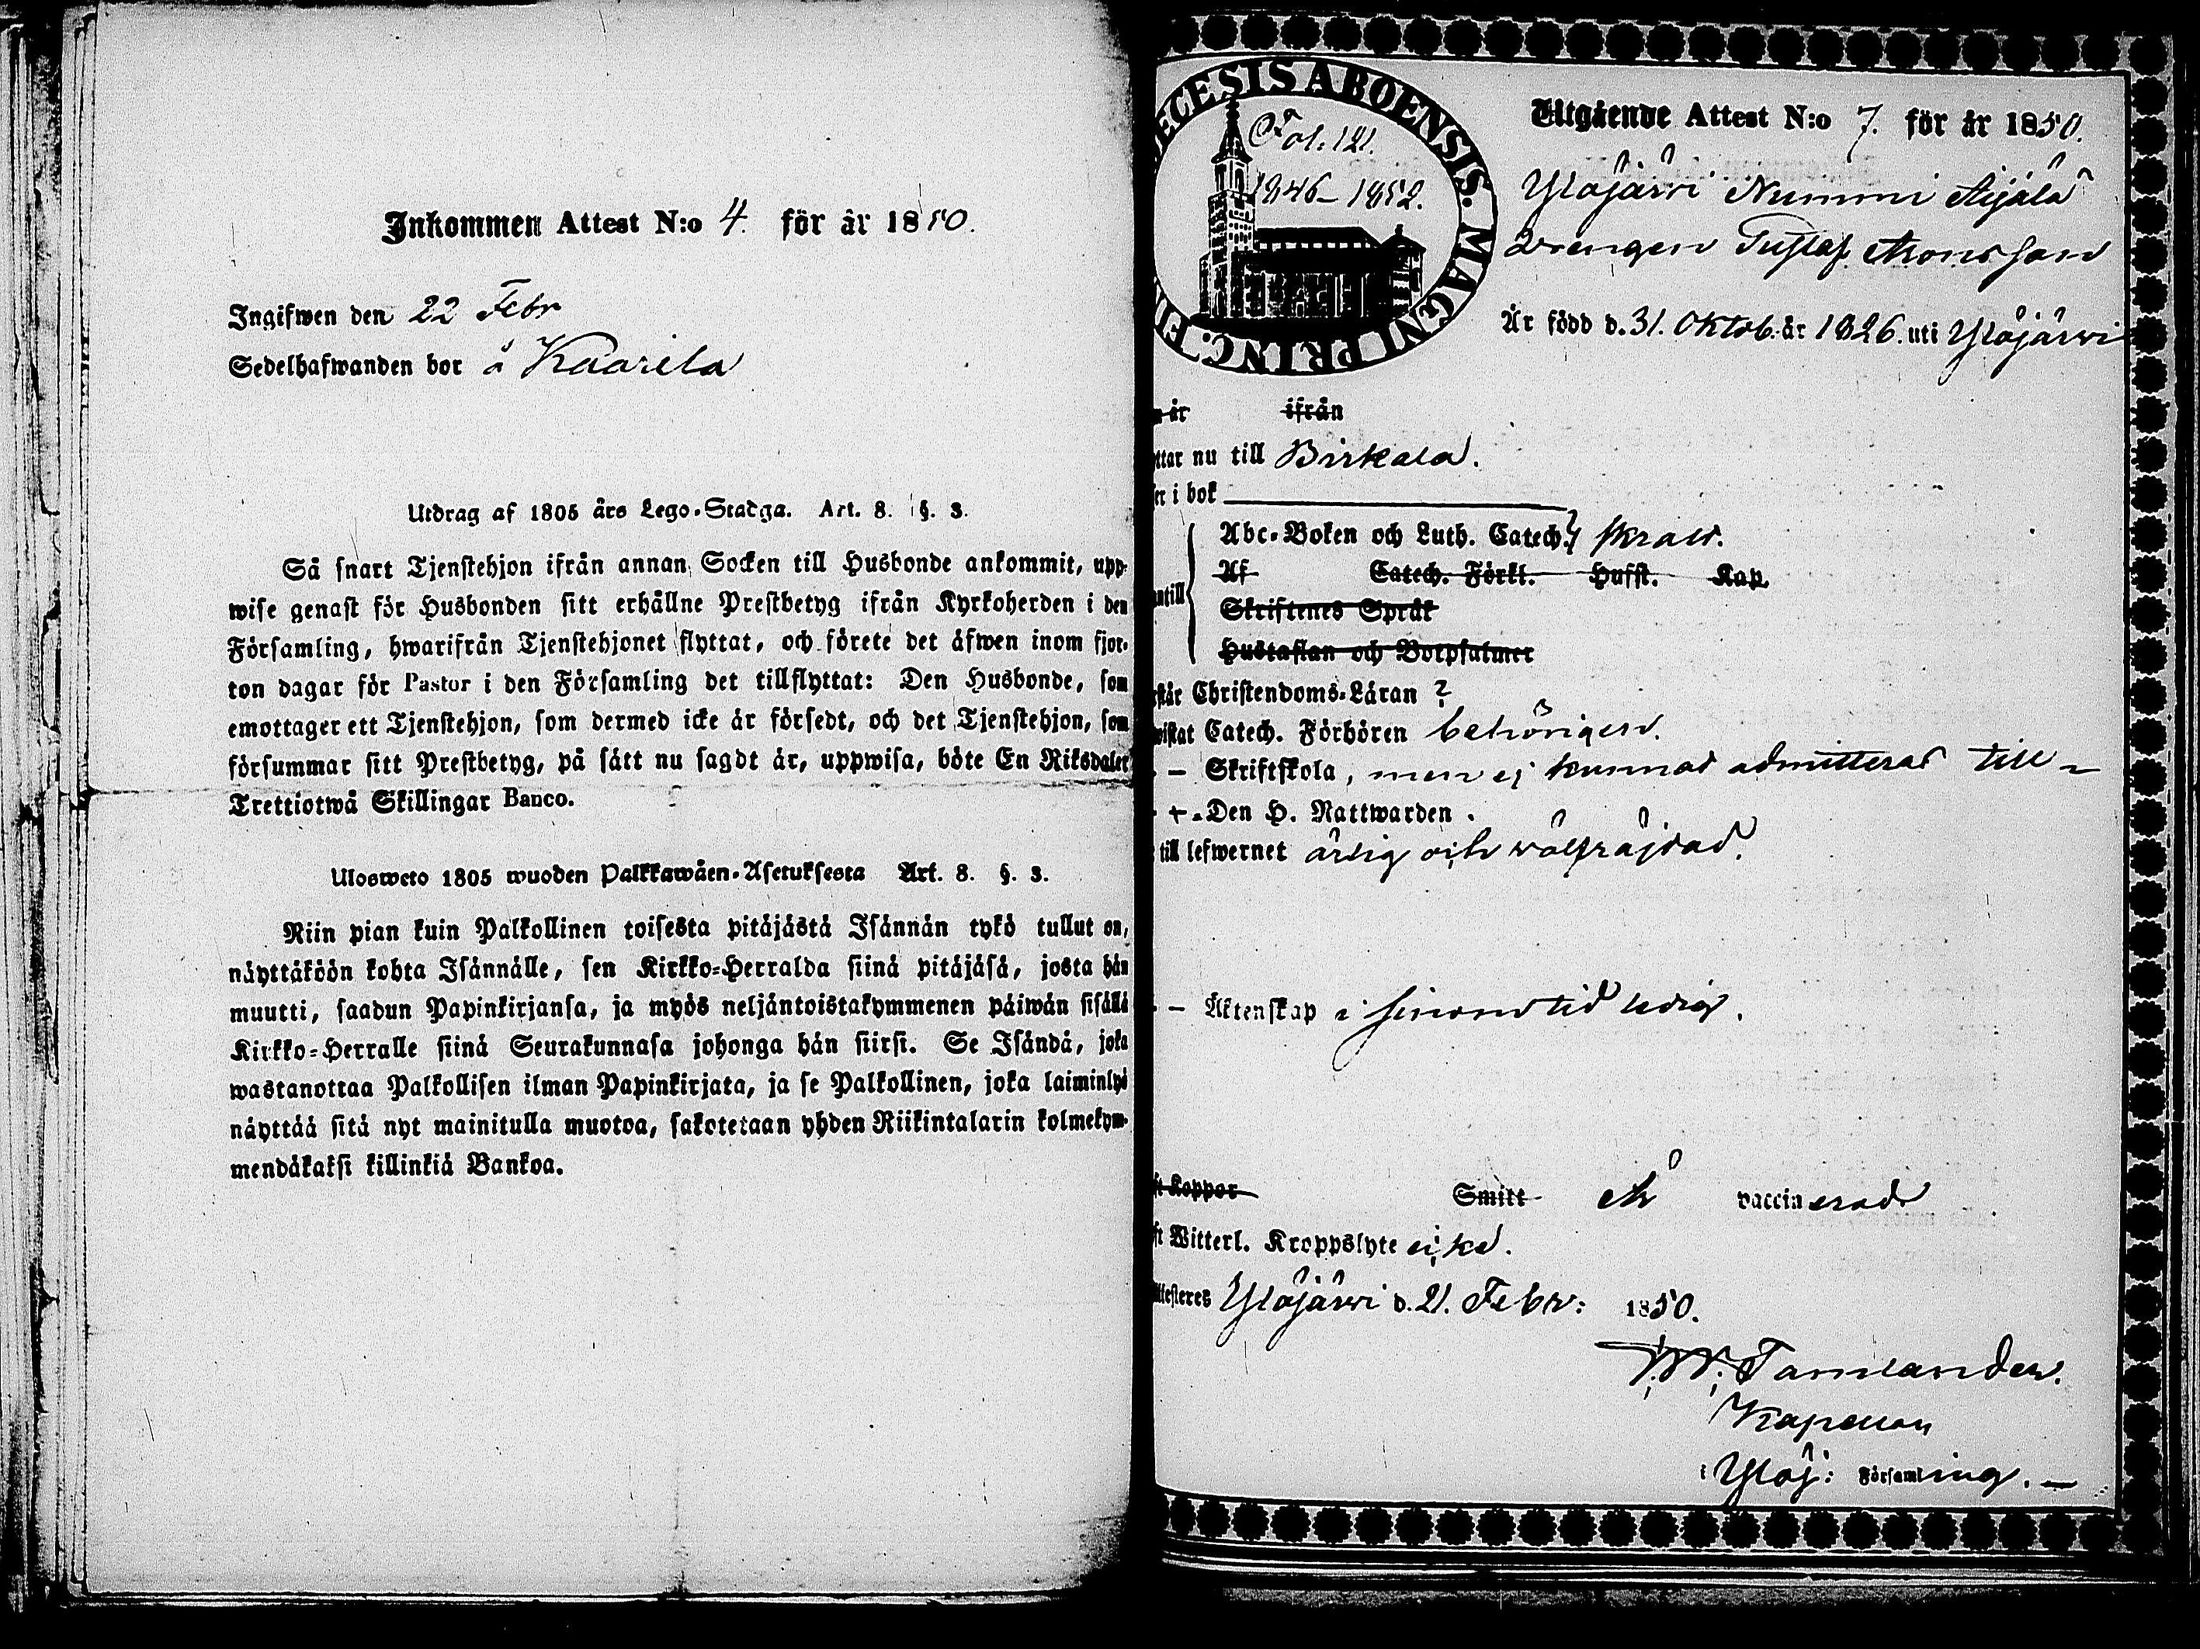 Inkommen Attest N:o 4. för år 1850.
Ingifwen den 22 Febr
Sedelhafwanden bor å Kaarila
Utdrag af 1805 års Lego-Stadga. Art. 8. §. 3.
Så snart Tjenstehjon ifrån annan Socken till Husbonde ankommit, upp-
wise genast för Husbonden sitt erhållne Prestbetyg ifrån Kyrkoherden i den
Församling, hwarifrån Tjenstehjonet flyttat, och förete det äfwen inom fjor-
ton dagar för Pastor i den Församling det tillflyttat: Den Husbonde, som
emottager ett Tjenstehjon, som dermed icke är försedt, och det Tjenstehjon, som
försummar sitt Prestbetyg, på sätt nu sagdt är, uppwisa, böte En Riksdaler
Trettiotwå Skillingar Banco.
Ulosweto 1805 wuoden Palkkawäen-Asetuksesta Art. 8. §. 3.
Niin pian kuin Palkollinen toisesta pitäjästä Isännän tykö tullut on,
näyttäköön kohta Isännälle, sen Kirkko-Herralda siinä pitäjäsä, josta hän
muutti, saadun Papinkirjansa, ja myös neljäntoistakymmenen päiwän sisällä
Kirkko-Herralle siinä Seurakunnasa johonga hän siirsi. Se Isändä, joka
wastanottaa Palkollisen ilman Papinkirjata, ja se Palkollinen, joka laiminlyö
näyttää sitä nyt mainitulla muotoa, sakotetaan yhden Riikintalarin kolmekym-
mendäkaksi killinkiä Bankoa.
ECESIS ABOENSIS. MAGNI PRINC. FI
Fol. 121.
1846-1852.
Utgående Attest N:o 7. för år 1850.
Ylöjärvi Nummi Äijälä
Drengen Gustaf Monsson
Är född d. 31. Oktob. år 1826. uti Ylöjärvi
år ifrån
ttar nu till Birkala.
er i bok
Abc-Boken och Luth. Catech. skralt.
Af Catech. Förkl. Husst. Kap.
antill Skriftenes Språk
Hustaflan och Botpsalmer
står Christendoms-Läran ?
wistat Catech. Förhören behörigen.
- Skriftskola, men ej kunnat admitteras till
+ Den H. Nattwarden.
till lefwernet ärlig och wälfräjdad.
- Äktenskap i sinom tid ledig.
ft Koppor Smitt Är vaccinerad
ft Witterl. Kroppslyte icke.
Attesteres Ylöjärvi d. 21. Febr: 1850.
Tamlander.
Kapellan
i Ylöj: Församling.